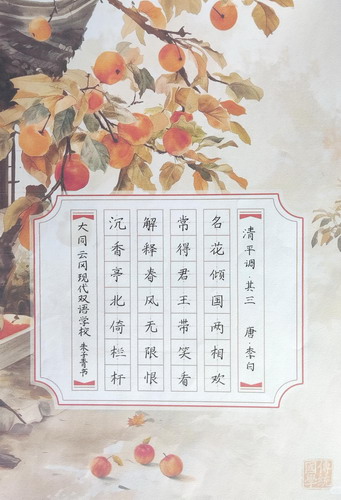 清平调·其三 唐·李白
名花倾国两相欢
常得君王带笑看
解释春风无限恨
沉香亭北倚栏杆
大同云冈现代双语学校 朱子青书